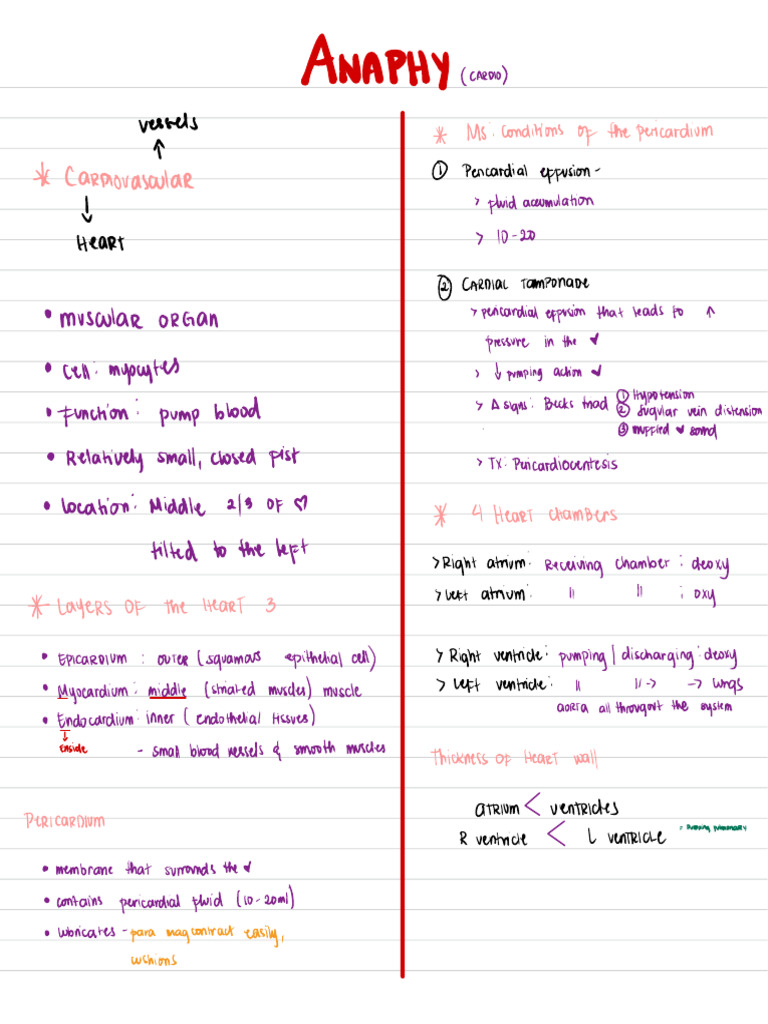 ANAPHY (CARDIO)
vessels
↑
* CARDIOVASCULAR
↓
HEART
• MUSCULAR ORGAN
• Cell: myocytes
• Function: pump blood
• Relatively small, closed fist
• location: Middle 2/3 OF ♡
tilted to the left
* LAYERS OF the HEART 3
• EPICARDIUM : OUTER (squamous epithelial cell)
• Myocardium: middle (striated muscles) muscle
• Endocardium: inner (endothelial tissues)
↓
inside
- small blood vessels & smooth muscles
PERICARDIUM
• membrane that surrounds the ♥
• contains pericardial fluid (10-20ml)
• lubricates - para mag contract easily,
cushions
* Ms: Conditions of the pericardium
① Pericardial effusion -
> fluid accumulation
> 10-20
② CARDIAL TAMPONADE
> pericardial effusion that leads to ↑
pressure in the ♥
> ↓ pumping action ♥
> Δ signs: Becks triad ① Hypotension
② Jugular vein distension
③ muffled ♥ sound
> Tx: Pericardiocentesis
* 4 HEART chambers
> Right atrium: Receiving chamber : deoxy
> Left atrium: " " : oxy
> Right ventricle: pumping | discharging: deoxy
> Left ventricle: " " -> -> lungs
aorta all throughout the system
Thickness OF HEART wall
ATRIUM < VENTRICLES
R ventricle < L VENTRICLE